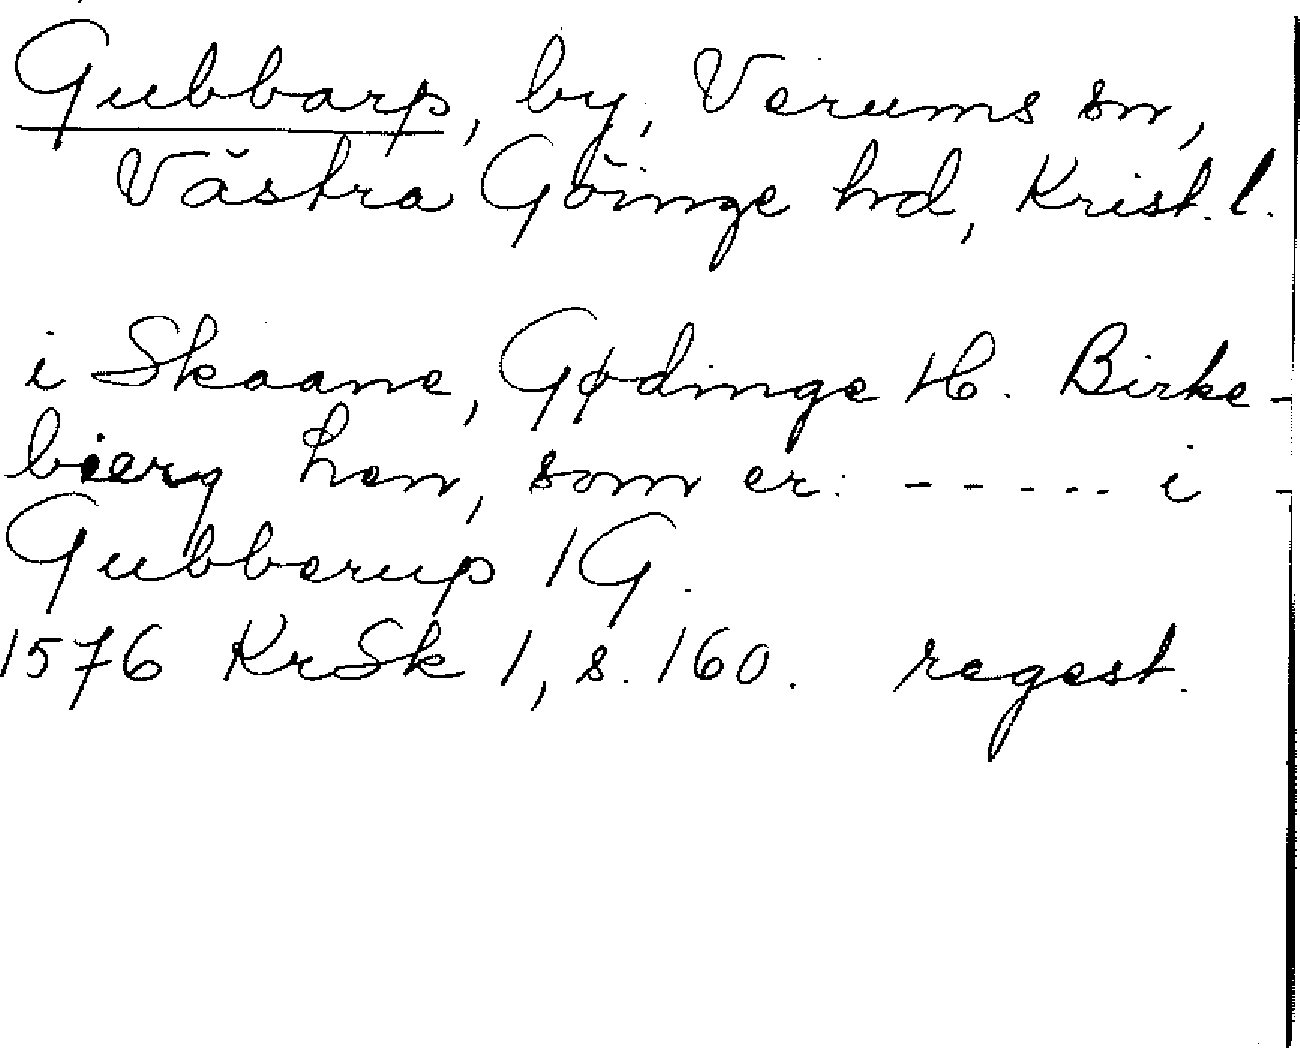 Gubbarp, by, Verums sn,
Västra Göinge hd, Krist. l.
i Skaane, Gødinge H. Birke-
bierg hen, som er: ----- i
Gubberup 1 G.
1576 KrSk 1, s. 160. regest.